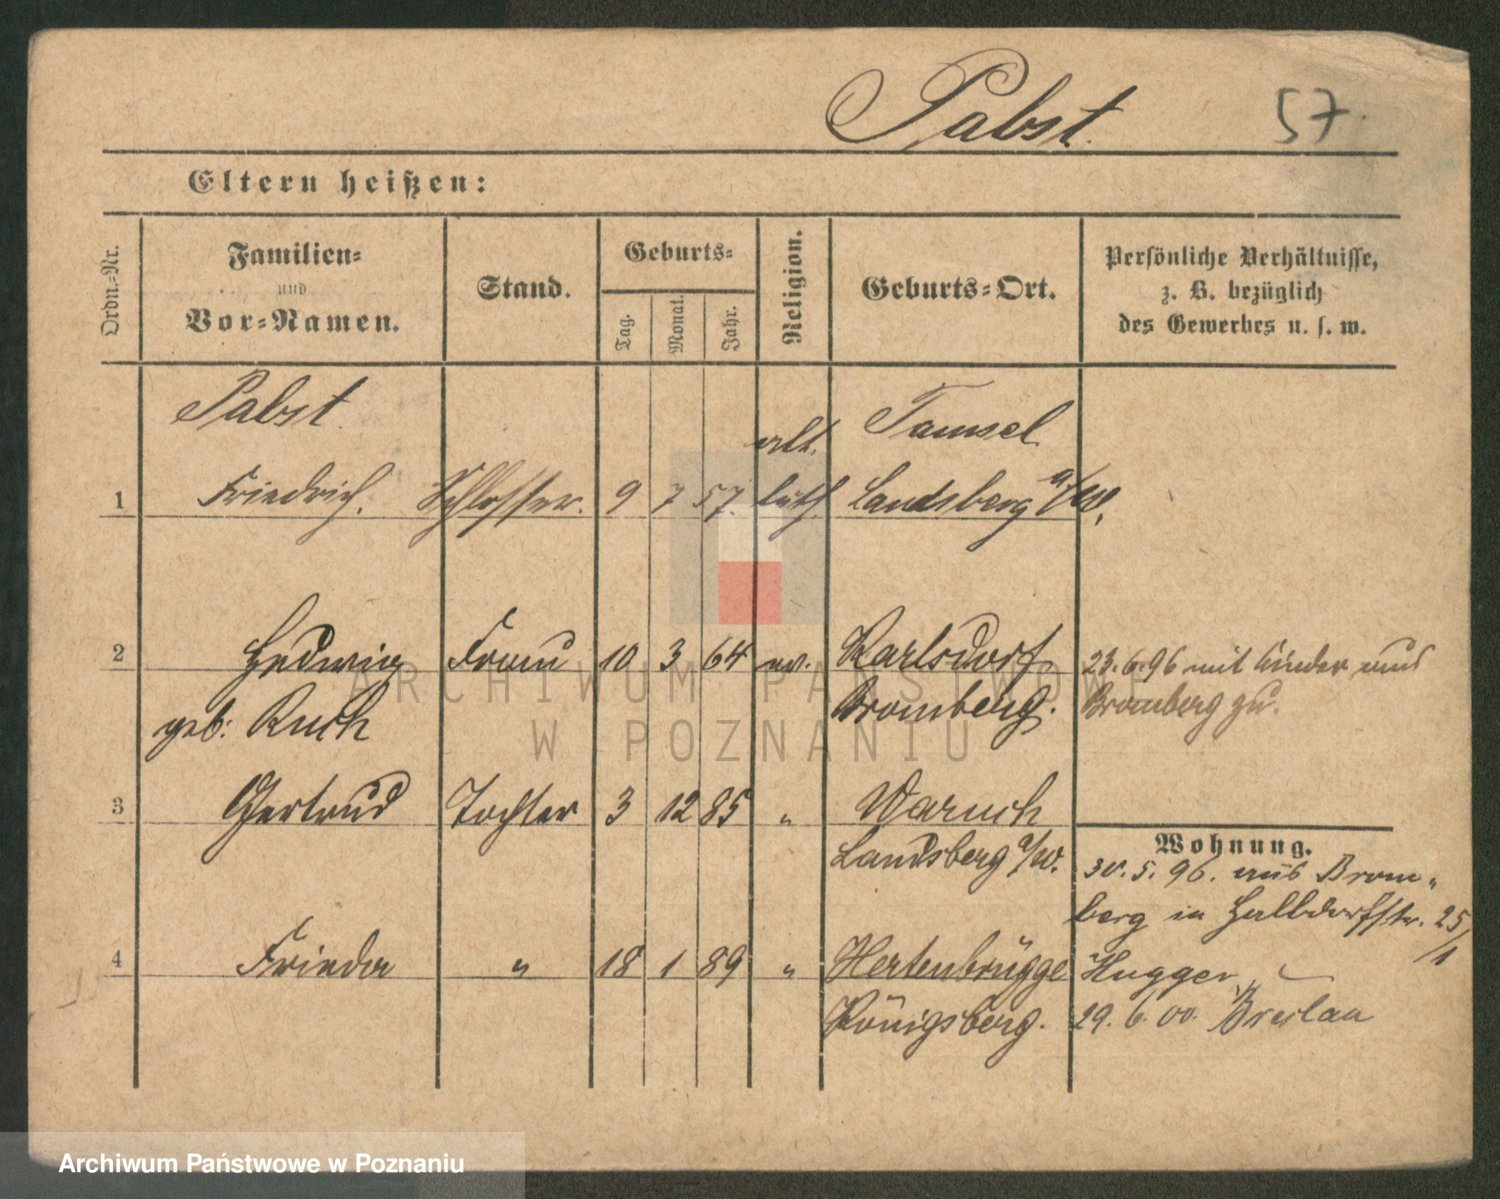 Pabst.
57.
Eltern heißen:
Ordn.-Nr.
Familien- und Vor-Namen.
Stand.
Geburts-
Tag.
Monat.
Jahr.
Religion.
Geburts-Ort.
Persönliche Verhältnisse, z. B. bezüglich des Gewerbes u. s. w.
Pabst.
alt. Tamsel
1 Friedrich. Schlosser. 9 7 57. luth. Landsberg a/W.
2 Hedwig Frau 10 3 64 ev. Karlsdorf 23.6.96 mit Kinder aus
geb: Bromberg. Bromberg zu.
3 Gertrud Tochter 3 12 85 " 
Landsberg a/W.
Wohnung.
30.5.96. aus Brom-
berg in Halbdorfstr. 25/1
4 Frieda " 18 1 89 " Hertenbrügge Hugger
Königsberg. 29.6.00. Breslau
ARCHIWUM PAŃSTWOWE
W POZNANIU
Archiwum Państwowe w Poznaniu